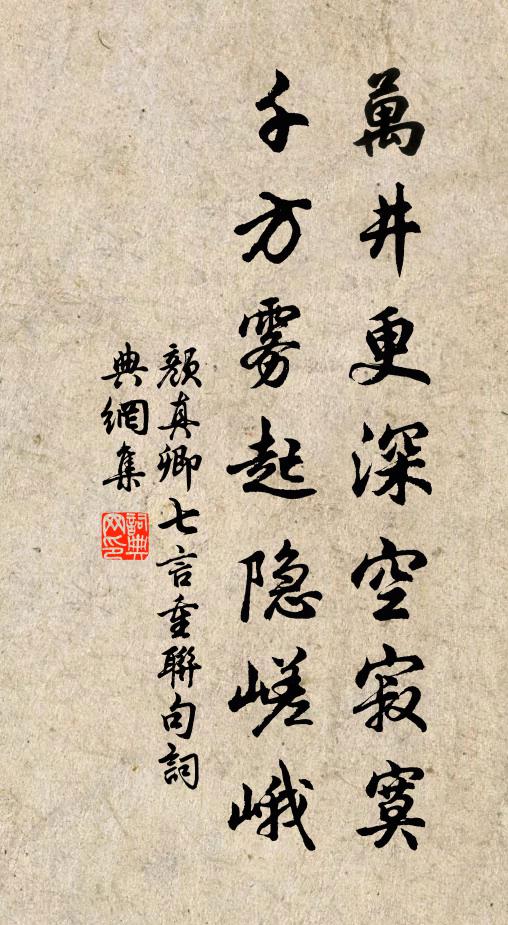 萬井更深空寂寞
千方雾起隐嵯峨
顏真卿七言重聯句詞
典網集
詞典
网印